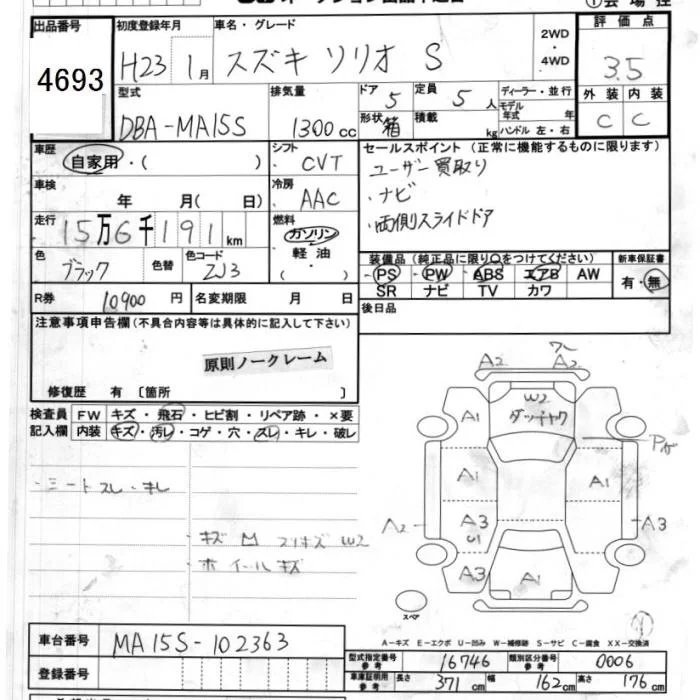 出品番号
4693
初度登録年月
H23 1月
車名・グレード
スズキ ソリオ S
2WD
・
4WD
評価点
3.5
外装 内装
C C
型式
DBA-MA15S
排気量
1300cc
ドア 5
形状 箱
定員 5人
積載 kg
ディーラー・並行
モデル年式 年
ハンドル 左・右
車歴
自家用・( )
シフト
CVT
車検
年 月( 日)
冷房
AAC
走行
15万6千191km
燃料
ガソリン
・
軽油
・
( )
セールスポイント(正常に機能するものに限ります)
ユーザー買取り
・ナビ
・両側スライドドア
色
ブラック
色替
色コード
ZJ3
装備品(純正品に限り○をつけてください)
PS PW ABS エアB AW
SR ナビ TV カワ
新車保証書
有・無
R券 10900円
名変期限 月 日
後日品
注意事項申告欄(不具合内容等は具体的に記入して下さい)
原則ノークレーム
修復歴 有〔箇所 〕
検査員
記入欄
FW キズ・飛石・ヒビ割・リペア跡・×要
内装 キズ・汚レ・コゲ・穴・スレ・キレ・破レ
・シートスレ・キレ
・キズ M スリキズ W2
・ホイールキズ
A2
A2
W2
ダッチャク
A1
A1
A1
A2
A3
U1
A3
A3
A1
スペア
車台番号 MA15S-102363
登録番号
A-キズ E-エクボ U-凹み W-補修跡 S-サビ C-腐食 XX-交換済
型式指定番号 参考 16746
類別区分番号 参考 0006
車庫証明用 参考 長さ 371cm 幅 162cm 高さ 176cm